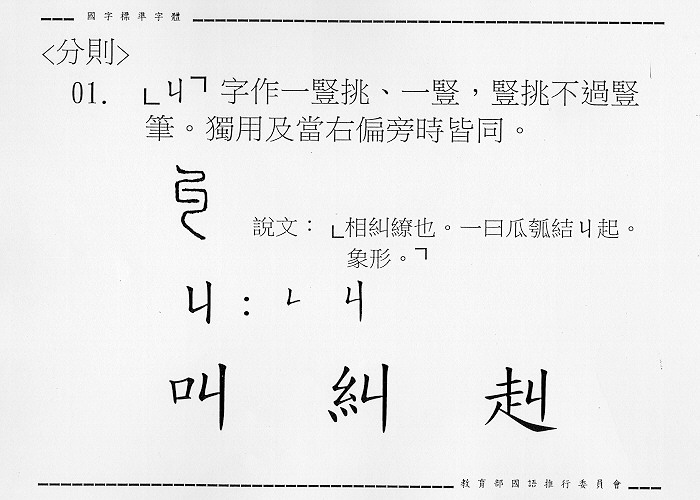 國字標準字體
<分則>
01. 「丩」字作一豎挑、一豎，豎挑不過豎
筆。獨用及當右偏旁時皆同。
說文：「相糾繚也。一曰瓜瓠結丩起。
象形。」
丩：㇙ 丩
叫 糾 赳
教育部國語推行委員會